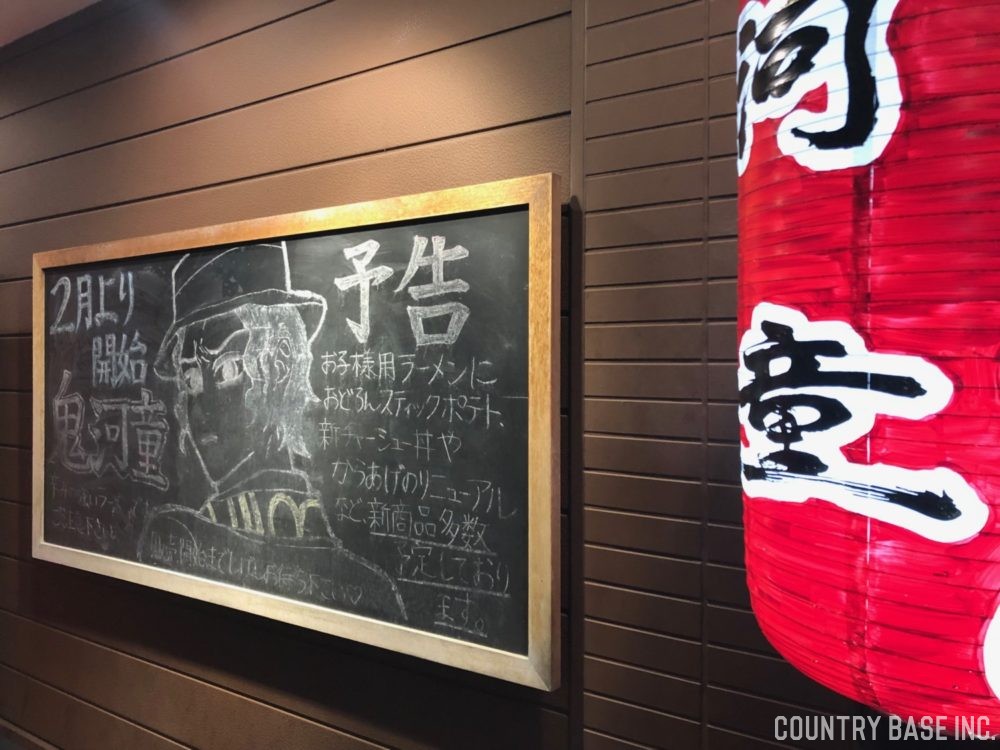 2月より
開始
鬼河童
予告
お子様用ラーメンに
おどろんスティックポテト、
新チャーシュー丼や
からあげのリニューアル
など、新商品多数
予定しており
ます。
河
童
COUNTRY BASE INC.